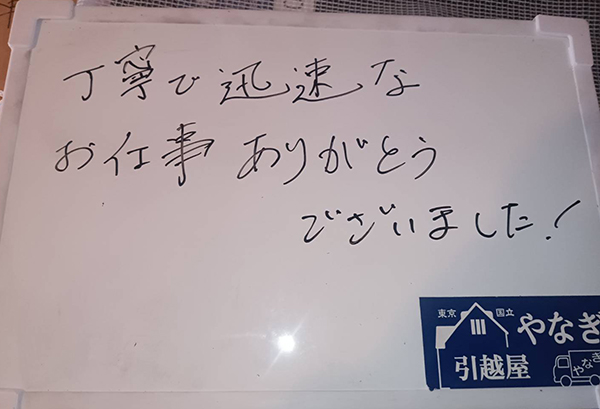 丁寧で迅速な
お仕事ありがとう
ございました!
東京 国立
やなぎ
引越屋
やなぎ